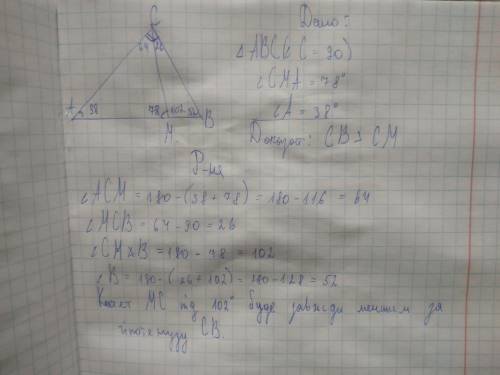 C
64 26
A 38 78 102 52 B
M
Дано:
△ABC(∠C = 90)
∠CMA = 78°
∠A = 38°
Доказат: CB > CM
Р-ня
∠ACM = 180 - (38 + 78) = 180 - 116 = 64
∠MCB = 64 - 90 = 26
∠CMB = 180 - 78 = 102
∠B = 180 - (26 + 102) = 180 - 128 = 52
Катет MC під 102° буде завжди меншим за
гіпотенузу CB.